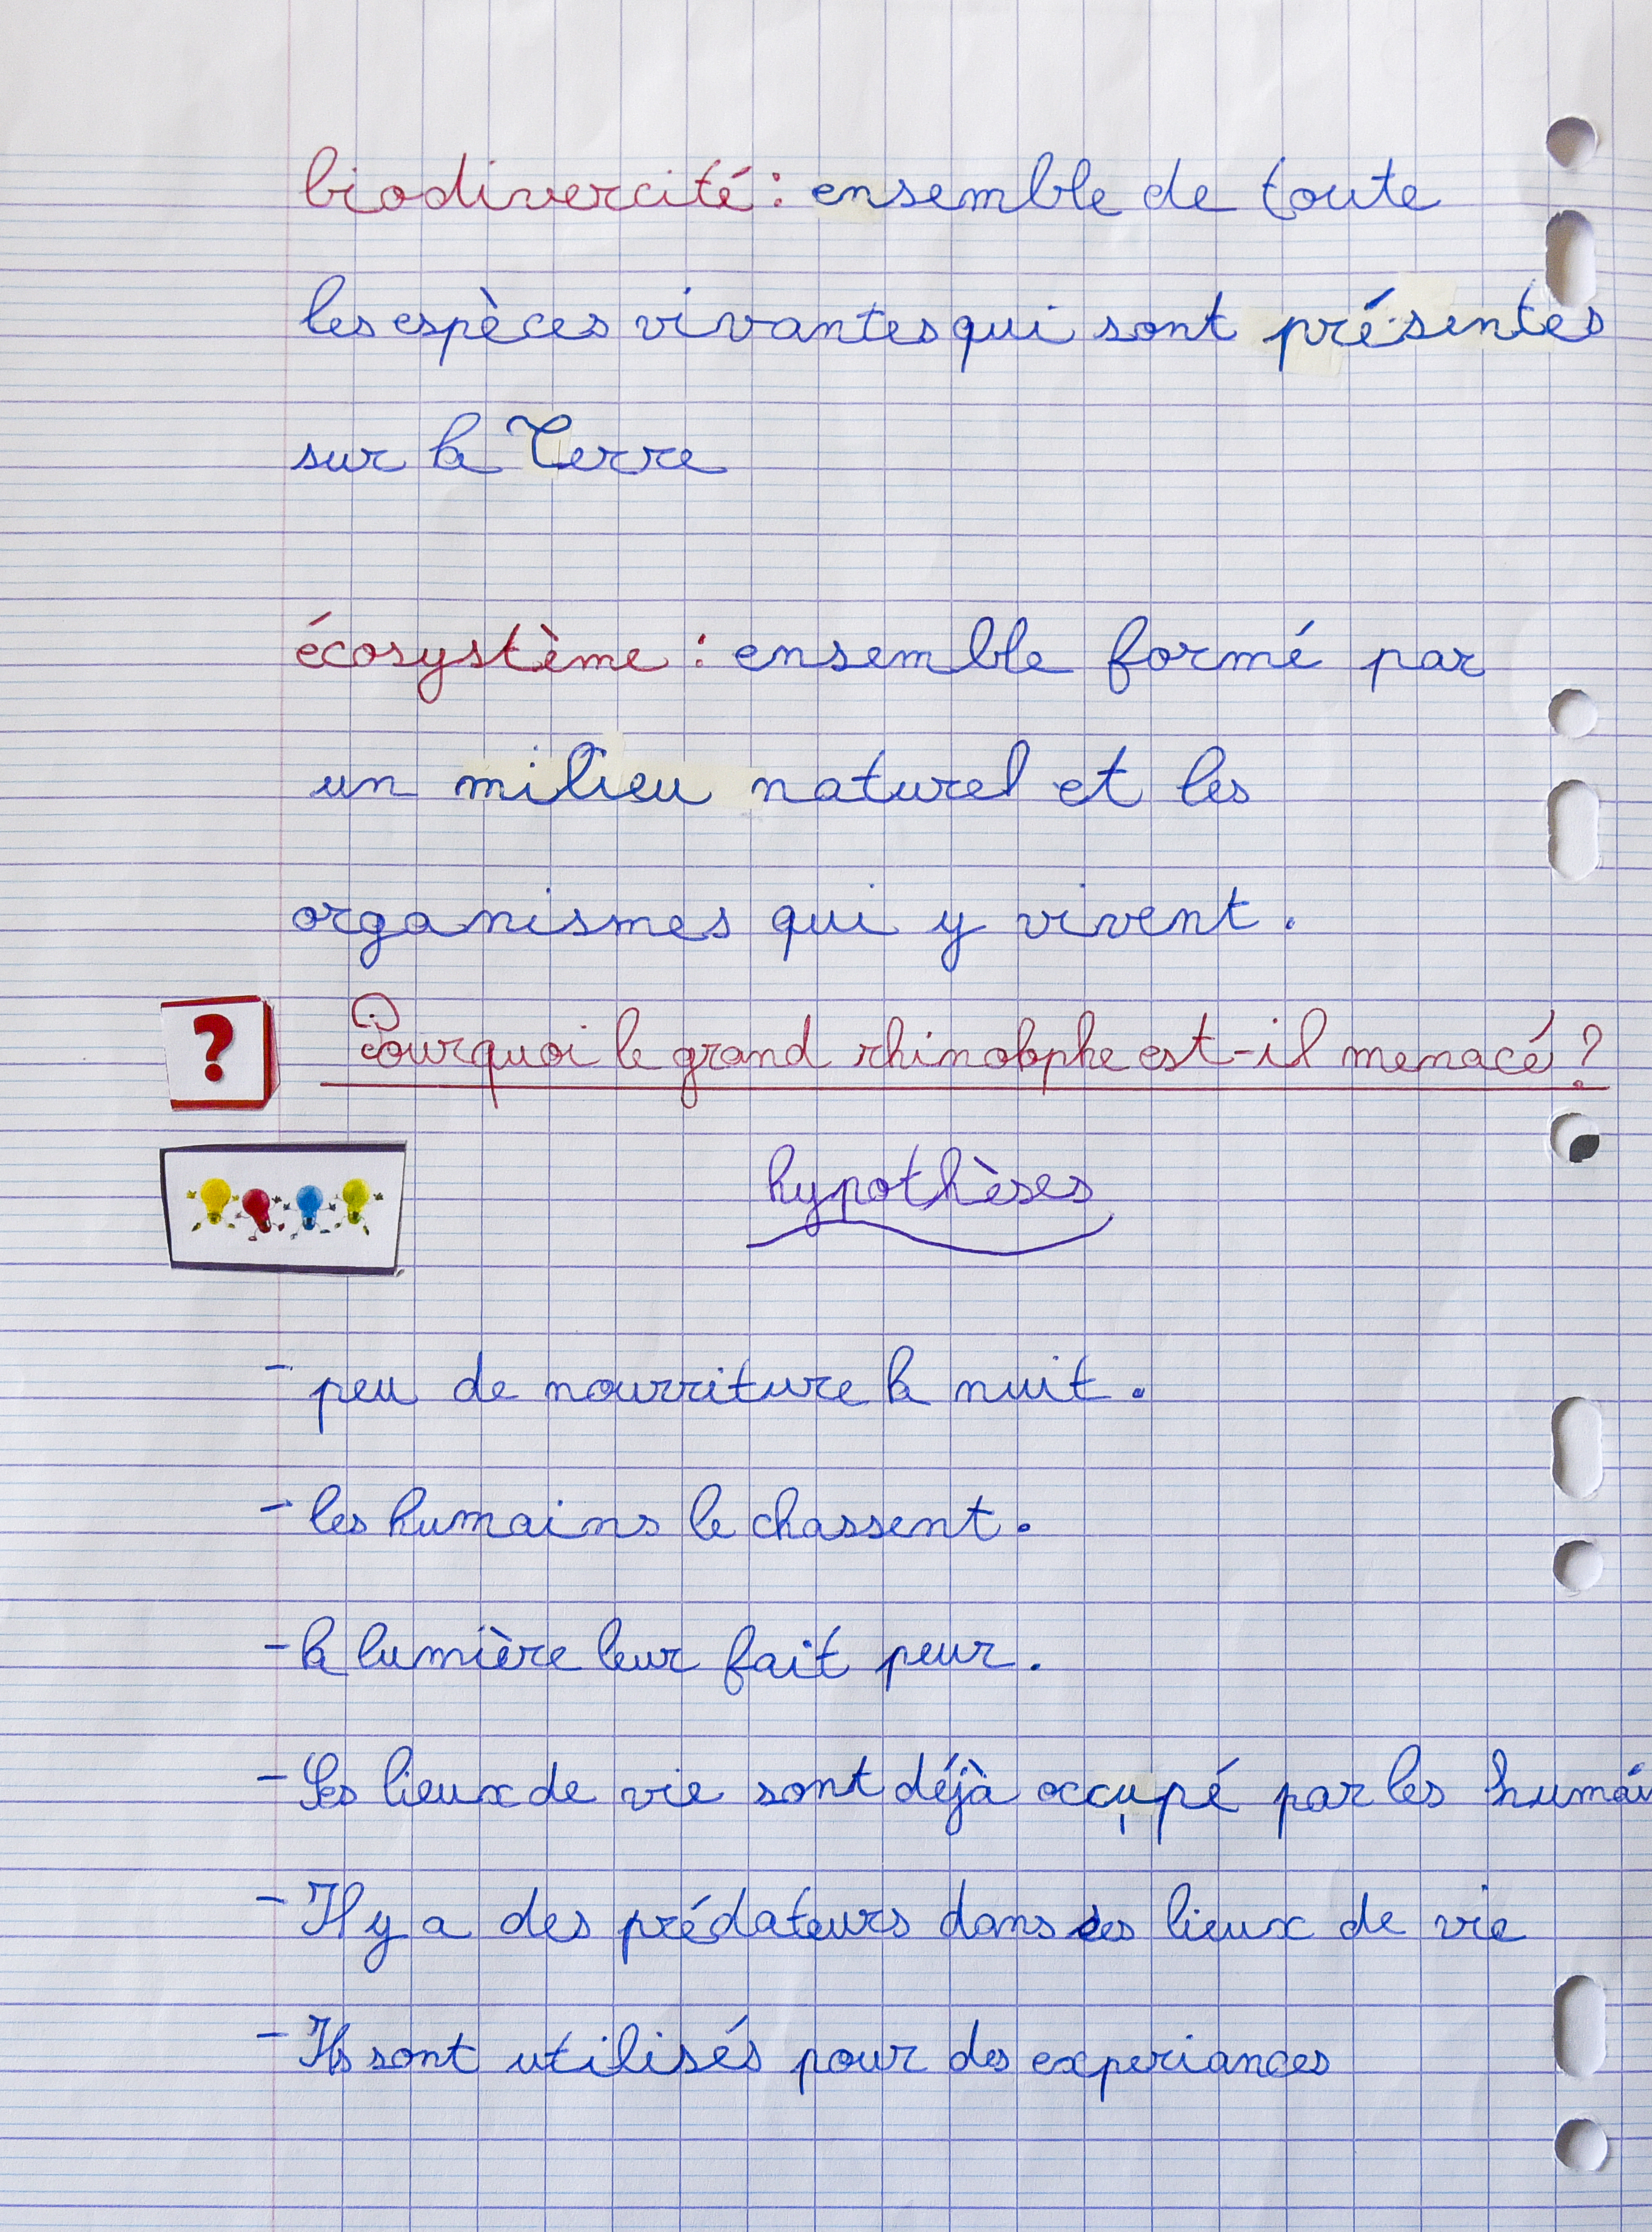 biodivercité : ensemble de toute
les espèces vivantes qui sont présentes
sur la Terre
écosystème : ensemble formé par
un milieu naturel et les
organismes qui y vivent.
?
Pourquoi le grand rhinolophe est-il menacé ?
hypothèses
- peu de nourriture la nuit.
- les humains le chassent.
- la lumière leur fait peur.
- Ses lieux de vie sont déjà occupé par les humain
- Il y a des prédateurs dans ses lieux de vie
- Ils sont utilisés pour des experiances